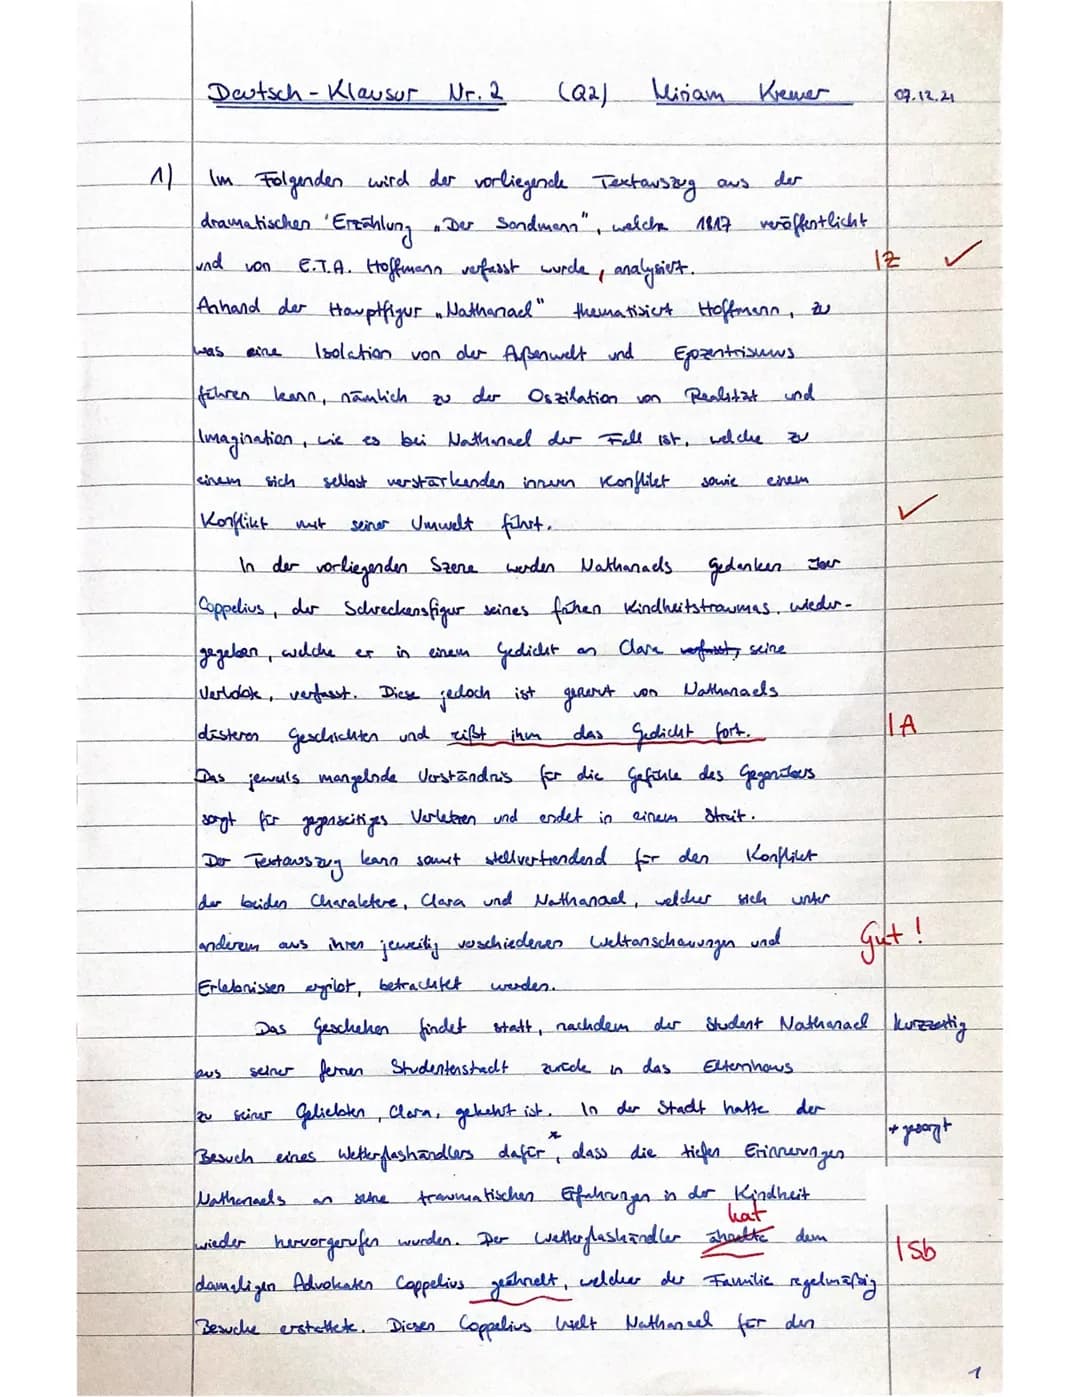 Deutsch-Klausur Nr. 2 (Q2) Miriam Kremer 07.12.21
1) Im Folgenden wird der vorliegende Textauszug aus der
dramatischen Erzählung „Der Sandmann", welche 1817 veröffentlicht
und von E.T.A. Hoffmann verfasst wurde, analysiert. IZ ✓
Anhand der Hauptfigur „Nathanael" thematisiert Hoffmann, zu
was eine Isolation von der Außenwelt und Egozentrismus
führen kann, nämlich zu der Oszilation von Realität und
Imagination, wie es bei Nathanael der Fall ist, welche zu
einem sich selbst verstärkenden inneren Konflikt sowie einem
Konflikt mit seiner Umwelt führt. ✓
In der vorliegenden Szene werden Nathanaels Gedanken über
Coppelius, der Schreckensfigur seines frühen Kindheitstraumas, wieder-
gegeben, welche er in einem Gedicht an Clara verfasst, seine
Verlobte, verfasst. Diese jedoch ist genervt von Nathanaels
düsteren Geschichten und rißt ihm das Gedicht fort. IA
Das jeweils mangelnde Verständnis für die Gefühle des Gegenübers
sorgt für gegenseitiges Verletzen und endet in einem Streit.
Der Textauszug kann somit stellvertrendend für den Konflikt
der beiden Charaktere, Clara und Nathanael, welcher sich unter
anderem aus ihren jeweilig verschiedenen Weltanschauungen und Gut!
Erlebnissen ergibt, betrachtet werden.
Das Geschehen findet statt, nachdem der Student Nathanael kurzzeitig
aus seiner fernen Studentenstadt zurück in das Elternhaus
zu seiner Geliebten, Clara, gekehrt ist. In der Stadt hatte der
* gesorgt
Besuch eines Wetterglashändlers dafür*, dass die tiefen Erinnerungen
Nathanaels an seine traumatischen Erfahrungen in der Kindheit
hat
wieder hervorgerufen wurden. Der Wetterglashändler ähnelte dem ISb
damaligen Advokaten Coppelius geähnelt, welcher der Familie regelmäßig
Besuche erstattete. Diesen Coppelius hielt Nathanael für den
1